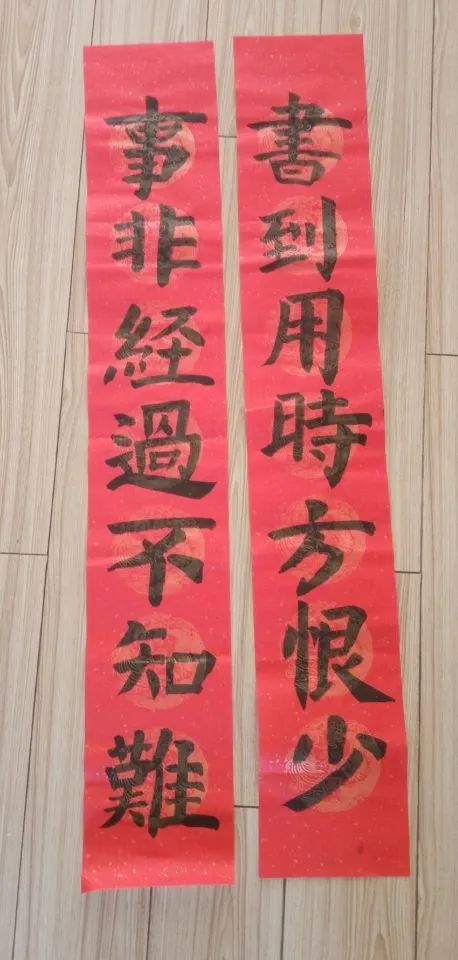 書到用時方恨少
事非経過不知難